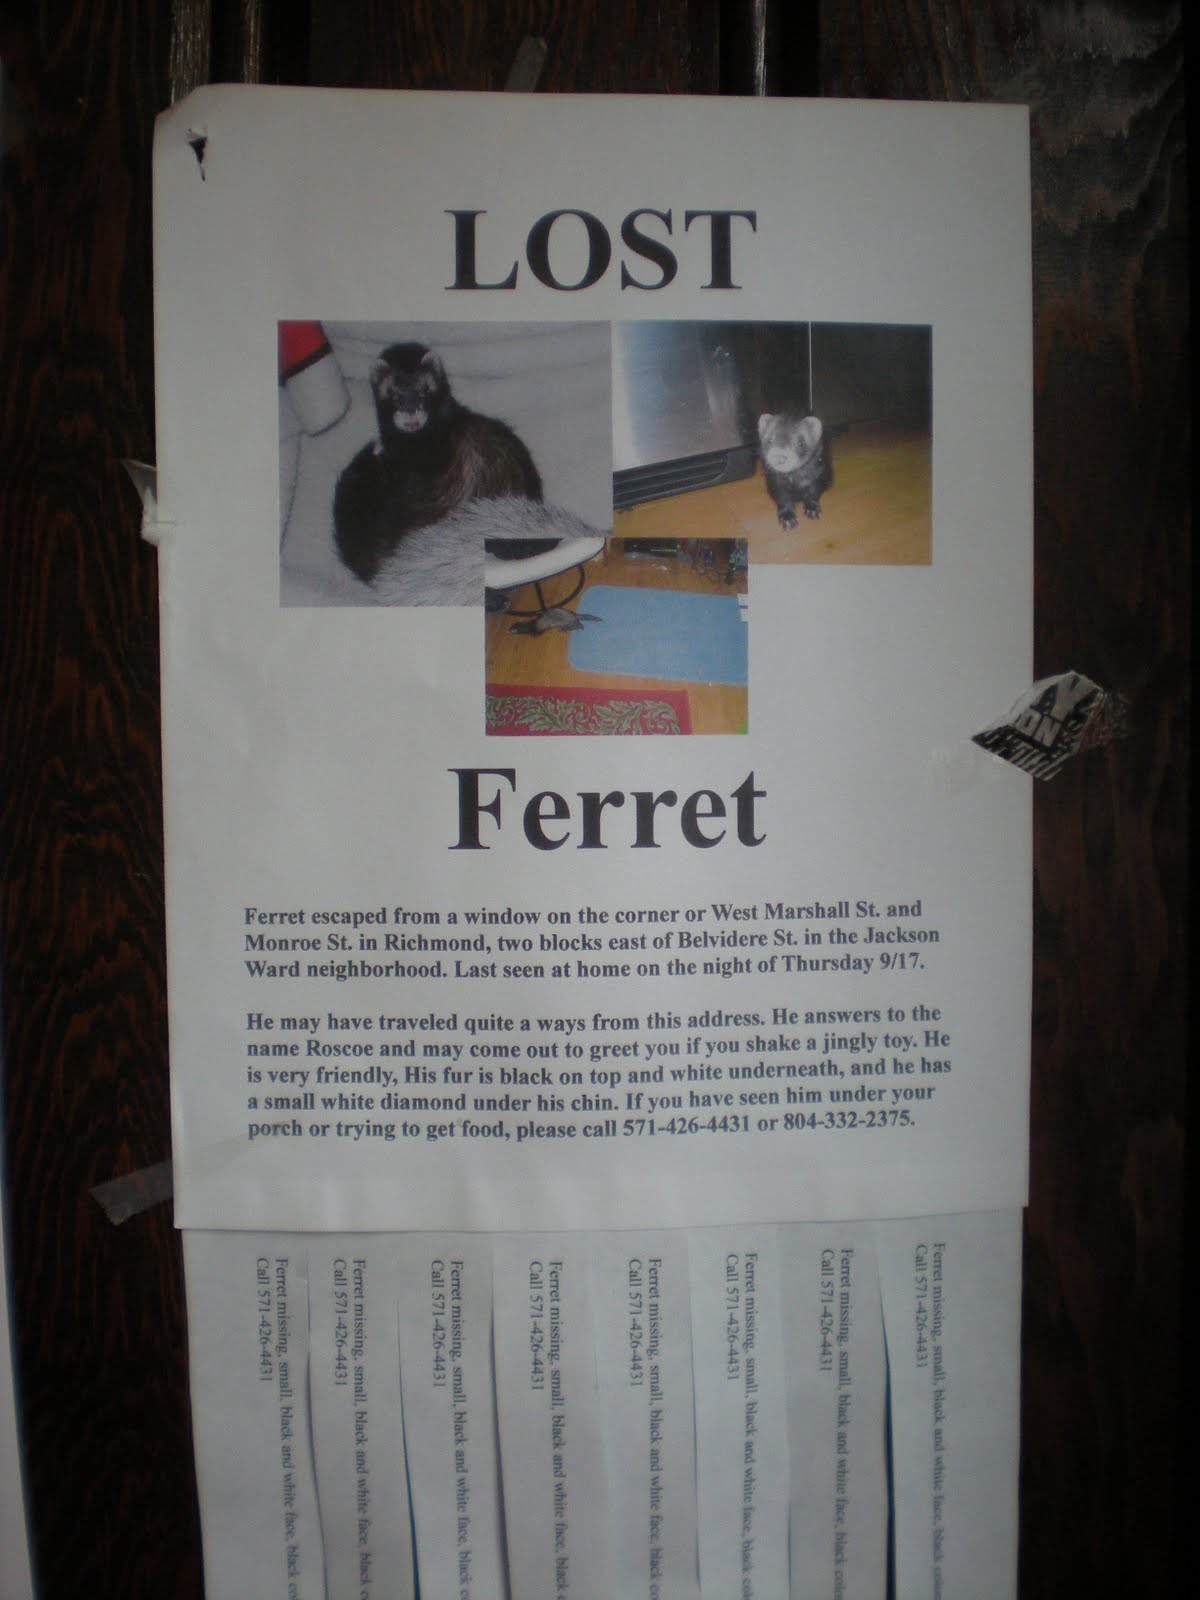 LOST
Ferret
Ferret escaped from a window on the corner or West Marshall St. and
Monroe St. in Richmond, two blocks east of Belvidere St. in the Jackson
Ward neighborhood. Last seen at home on the night of Thursday 9/17.
He may have traveled quite a ways from this address. He answers to the
name Roscoe and may come out to greet you if you shake a jingly toy. He
is very friendly, His fur is black on top and white underneath, and he has
a small white diamond under his chin. If you have seen him under your
porch or trying to get food, please call 571-426-4431 or 804-332-2375.
Ferret missing, small, black and white face, black
Call 571-426-4431
Ferret missing, small, black and white face, black
Call 571-426-4431
Ferret missing, small, black and white face, black
Call 571-426-4431
Ferret missing, small, black and white face, black
Call 571-426-4431
Ferret missing, small, black and white face, black
Call 571-426-4431
Ferret missing, small, black and white face, black
Call 571-426-4431
Ferret missing, small, black and white face, black
Call 571-426-4431
Ferret missing, small, black and white face, black
Call 571-426-4431